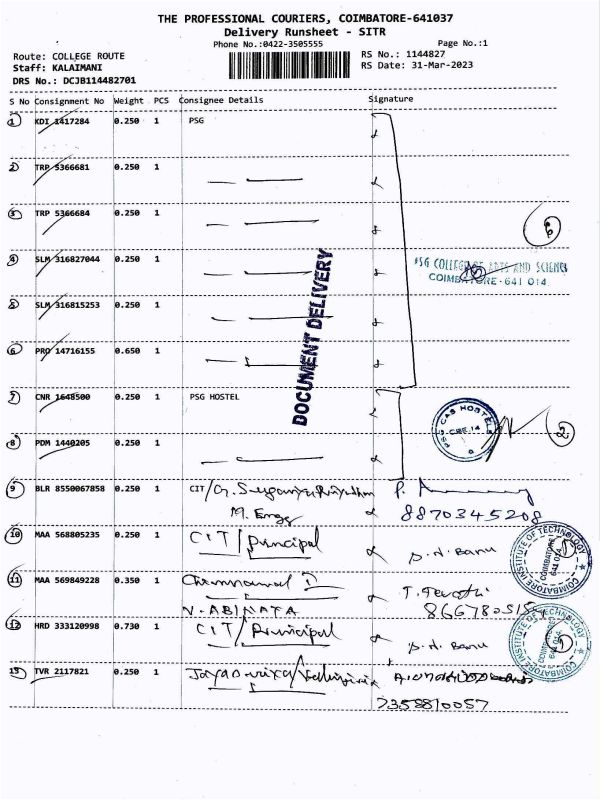 THE PROFESSIONAL COURIERS, COIMBATORE-641037
Delivery Runsheet - SITR
Phone No.:0422-3505555 Page No.:1
Route: COLLEGE ROUTE RS No.: 1144827
Staff: KALAIMANI RS Date: 31-Mar-2023
DRS No.: DCJB114482701
S No Consignment No Weight PCS Consignee Details Signature
1 KDI 1417284 0.250 1 PSG
2 TRP 5366681 0.250 1
3 TRP 5366684 0.250 1
6
4 SLM 316827044 0.250 1
PSG COLLEGE OF ARTS AND SCIENCE
COIMBATORE - 641 014
5 SLM 316815253 0.250 1
6 PRO 14716155 0.650 1
DOCUMENT DELIVERY
7 CNR 1648500 0.250 1 PSG HOSTEL
PSG CAS HOSTELS
CBE.14
2
8 PDM 1440205 0.250 1
9 BLR 8550067858 0.250 1 CIT/G.
M. Engg 8870345208
10 MAA 568805235 0.250 1 CIT/Principal S.N. Banu
COIMBATORE INSTITUTE OF TECHNOLOGY
COIMBATORE
641 014
11 MAA 569849228 0.350 1
V. ABINAYA
12 HRD 333120998 0.730 1 CIT/Principal S.N. Banu
COIMBATORE INSTITUTE OF TECHNOLOGY
COIMBATORE
641 014
13 TVR 2117821 0.250 1
7358810057